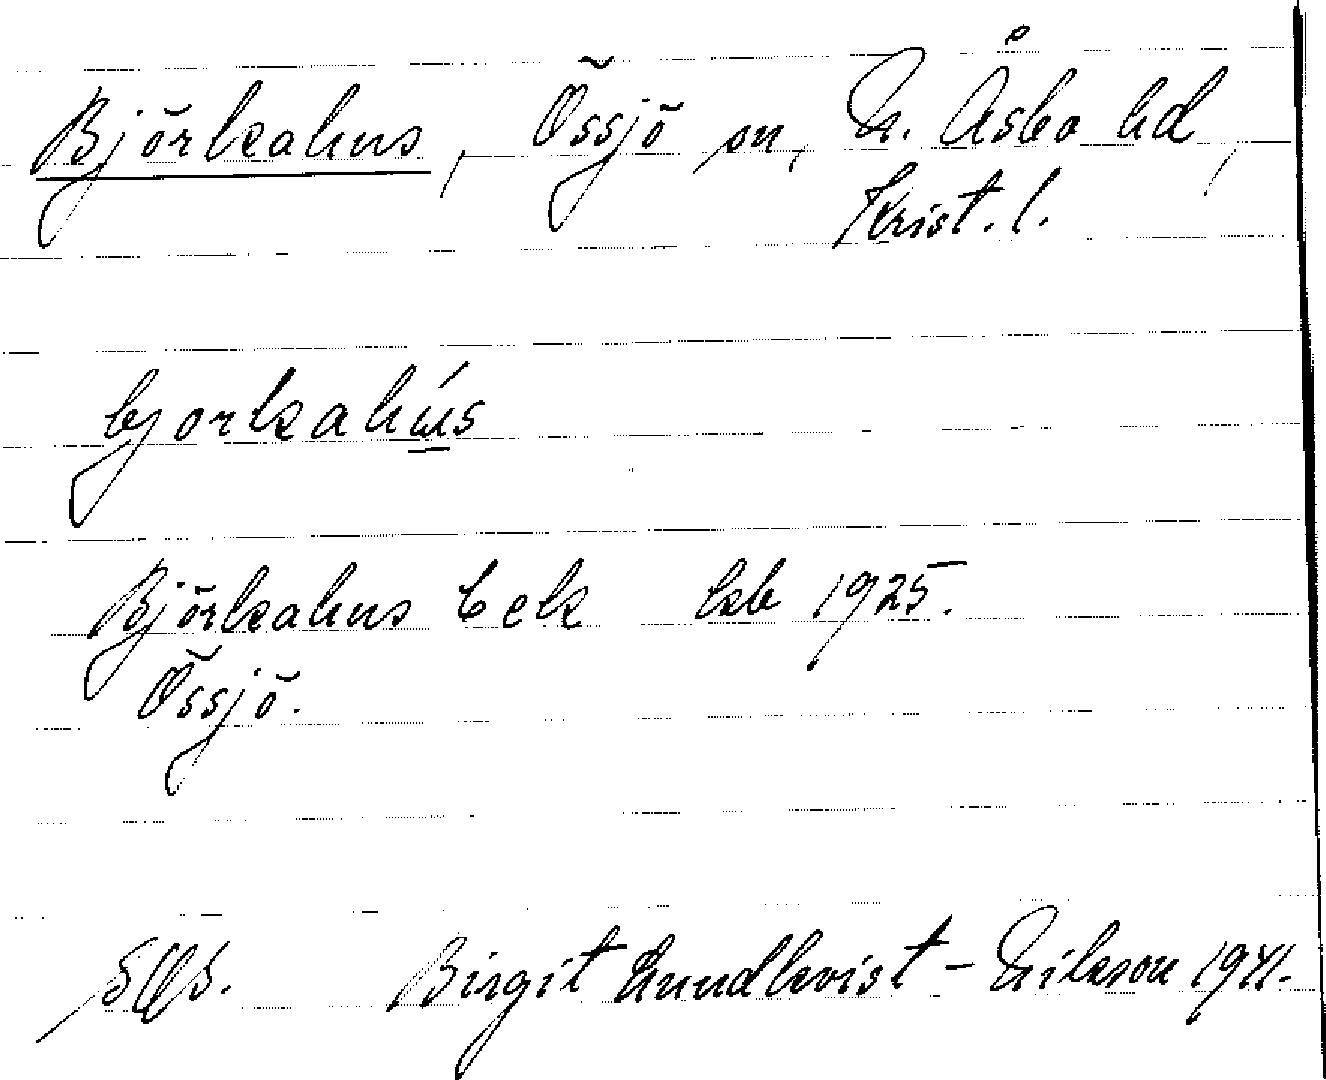 Björkahus, Össjö sn, N. Åsbo hd,
Krist. l.
bjorkahús
Björkahus kb 1925.
Össjö.
Birgit Lundkvist - Nilsson 1941.